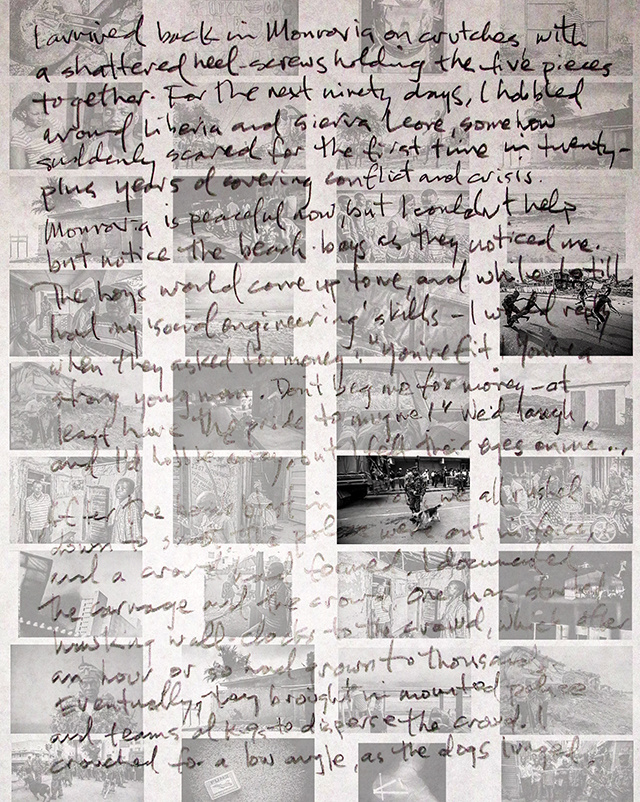 I arrived back in Monrovia on crutches with
a shattered heel - screws holding the five pieces
together. For the next ninety days, I hobbled
around Liberia and Sierra Leone, somehow
suddenly scared for the first time in twenty-
plus years of covering conflict and crisis.
Monrovia is peaceful now, but I couldn't help
but notice the beach boys as they noticed me.
The boys would come up to me, and while I still
had my 'social engineering' skills - I would
when they asked for money: "You're fit. You're a
strong young man. Don't beg me for money - at
least have the pride to mug me!" We'd laugh,
and I'd hobble away, but I felt their eyes on me...
After the in we all rushed
down to the police went out in force,
and a crowd had formed. I documented
the carnage and the crowd. One man started
hawking wall clocks to the crowd, which after
an hour or so had grown to thousands.
Eventually, they brought in mounted police
and teams of K-9s to disperse the crowd. I
crouched for a low angle, as the dogs lunged.